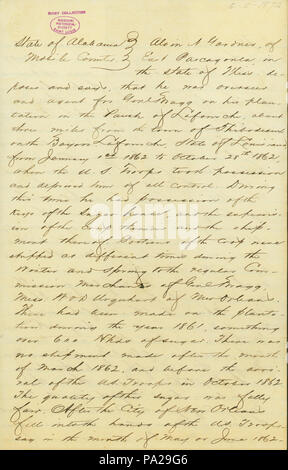 State of Alabama } Alvin N Gardner, of
Mobile County } East Pascagoula, in
the State of Miss: de-
poses and said, that he was overseer
and agent for Genl Bragg on his plan-
tation in the Parish of Lafourch, about
three miles from the town of Thibodeaux
on the Bayou Lafourch, State of Louis
from January 1st 1862 to October 28th 1862,
when the U S Troops took possession
and deprived him of all control. During
this time he had possession of the
keys of the Sugar house and the supervis-
ion of the
ment of portions of the crop
shipped at different times during the
Winter and Spring to the regular Com-
mission Merchants of Genl Bragg,
Urquhart of New Orleans.
There had been made on the planta-
tion during the year 1861, something
over 600 Hhds of sugar. There was
no shipment made after the month
of March 1862, and before the arri-
val of the US Troops in October 1862
The quality of this sugar was fully
fair. After the City of New Orleans
fell into the hands of the U.S. Troops
say in the month of May or June 1862
alamy
alamy
Image ID: PA29G6
www.alamy.com